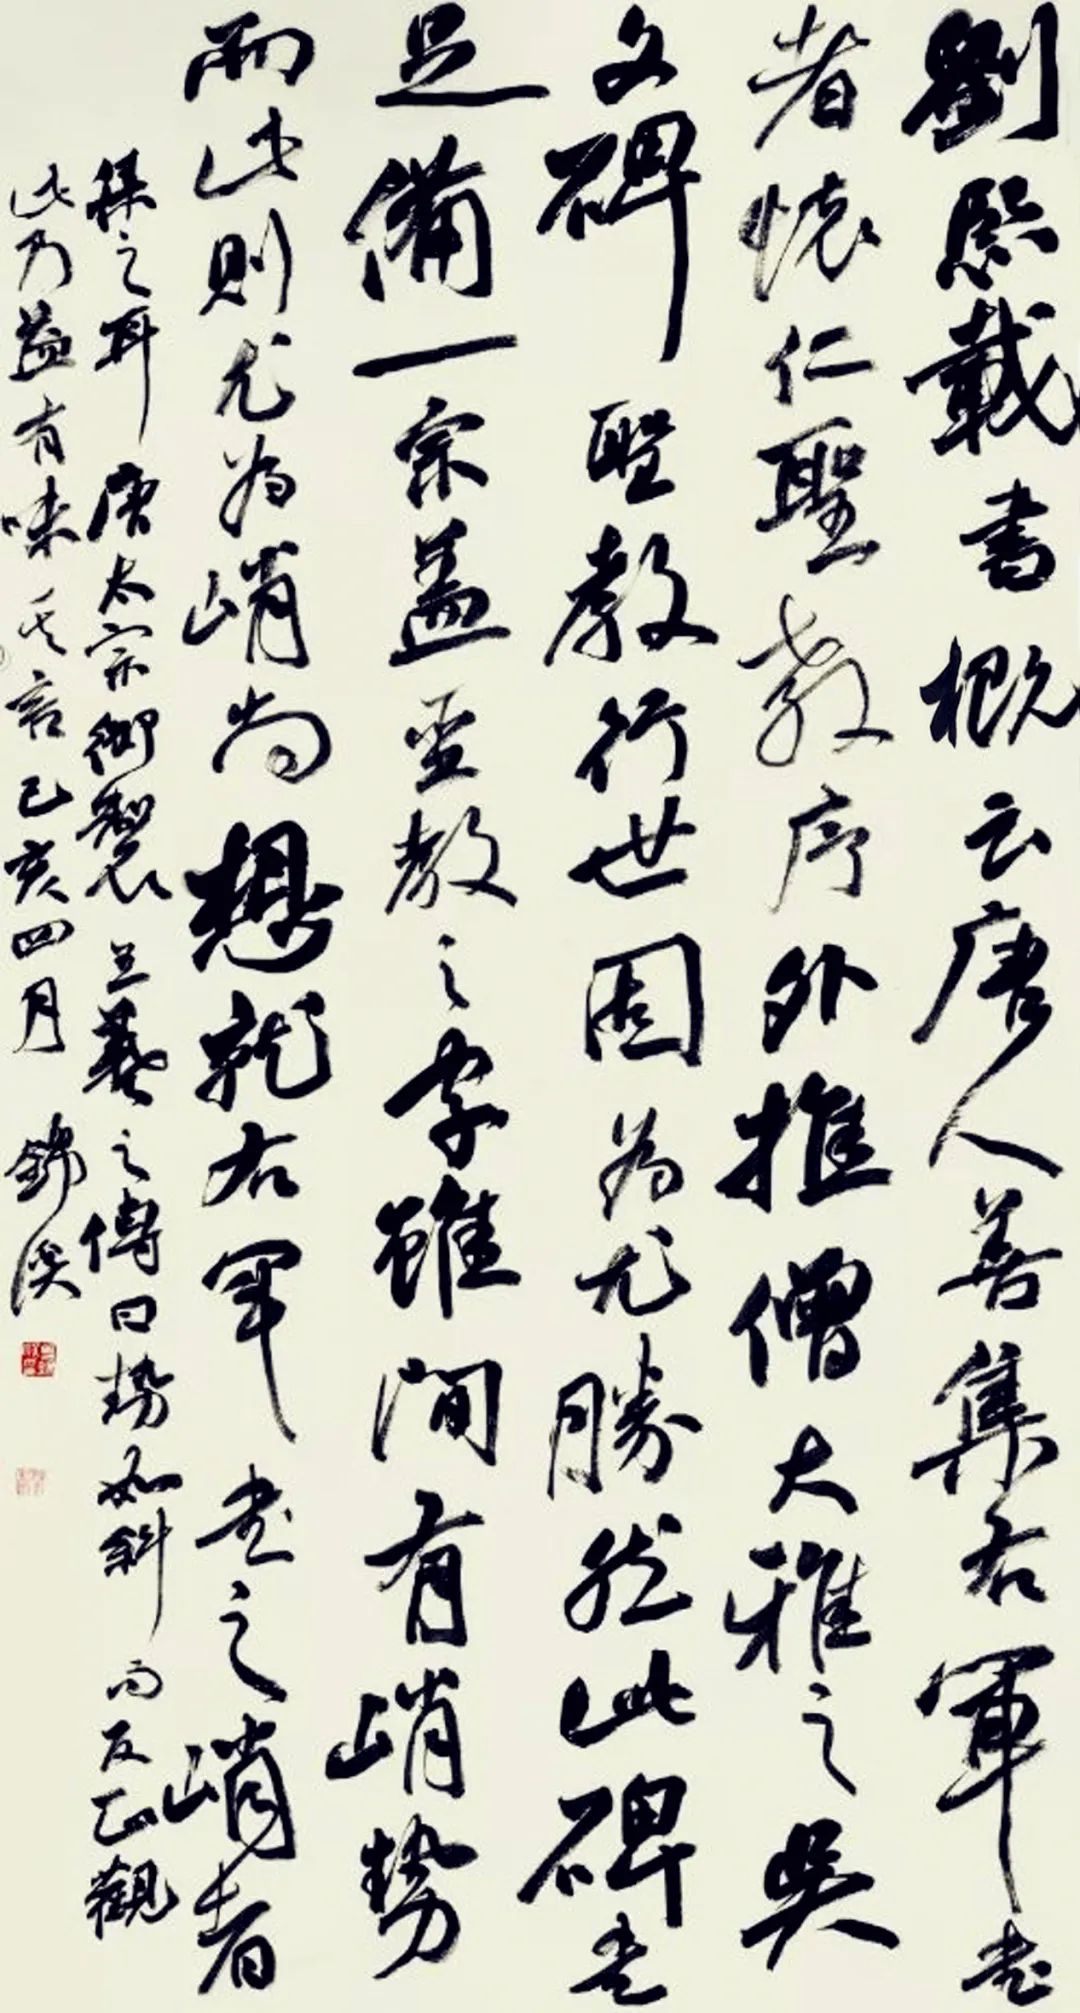 劉熙載書概云唐人善集右軍書
者懷仁聖教序外推僧大雅之吳
文碑聖教行世固為尤勝然此碑書
足備一宗蓋聖教之字雖間有峭勢
而此則尤為峭尚想就右軍書之峭者
集之耳唐太宗御製王羲之傳曰勢如斜而反正觀
此乃益有味其言己亥四月錦溪